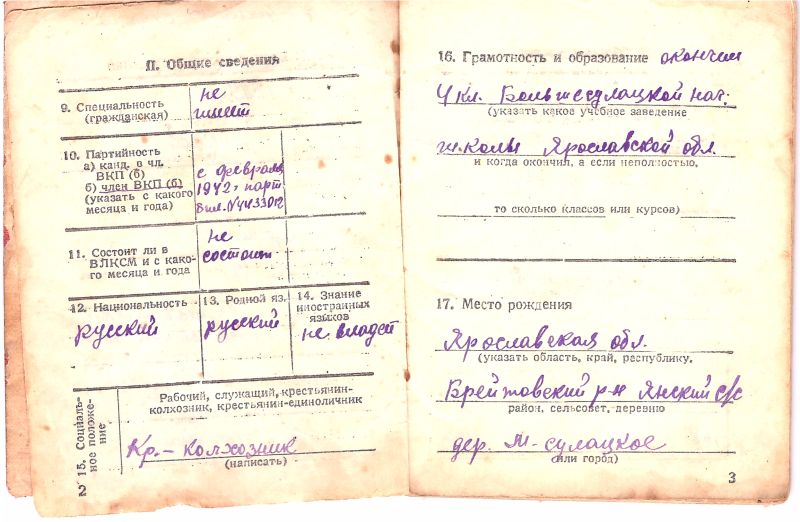 II. Общие сведения
9. Специальность
(гражданская)
не
имеет
10. Партийность
а) канд. в чл.
ВКП (б)
б) член ВКП (б)
(указать с какого
месяца и года)
с февраля
1942г парт
бил. № 4433012
11. Состоит ли в
ВЛКСМ и с како-
го месяца и года
не
состоит
12. Национальность
русский
13. Родной яз.
русский
14. Знание
иностранных
языков
не владеет
15. Социаль-
ное положе-
ние
Рабочий, служащий, крестьянин-
колхозник, крестьянин-единоличник
Кр.- колхозник
(написать)
2
16. Грамотность и образование окончил
4 кл. Большесулацкой нач.
(указать какое учебное заведение
школы Ярославской обл.
и когда окончил, а если неполностью,
то сколько классов или курсов)
17. Место рождения
Ярославская обл.
(указать область, край, республику,
Брейтовский р-н Янский с/с
район, сельсовет, деревню
дер. М-сулацкое
или город)
3